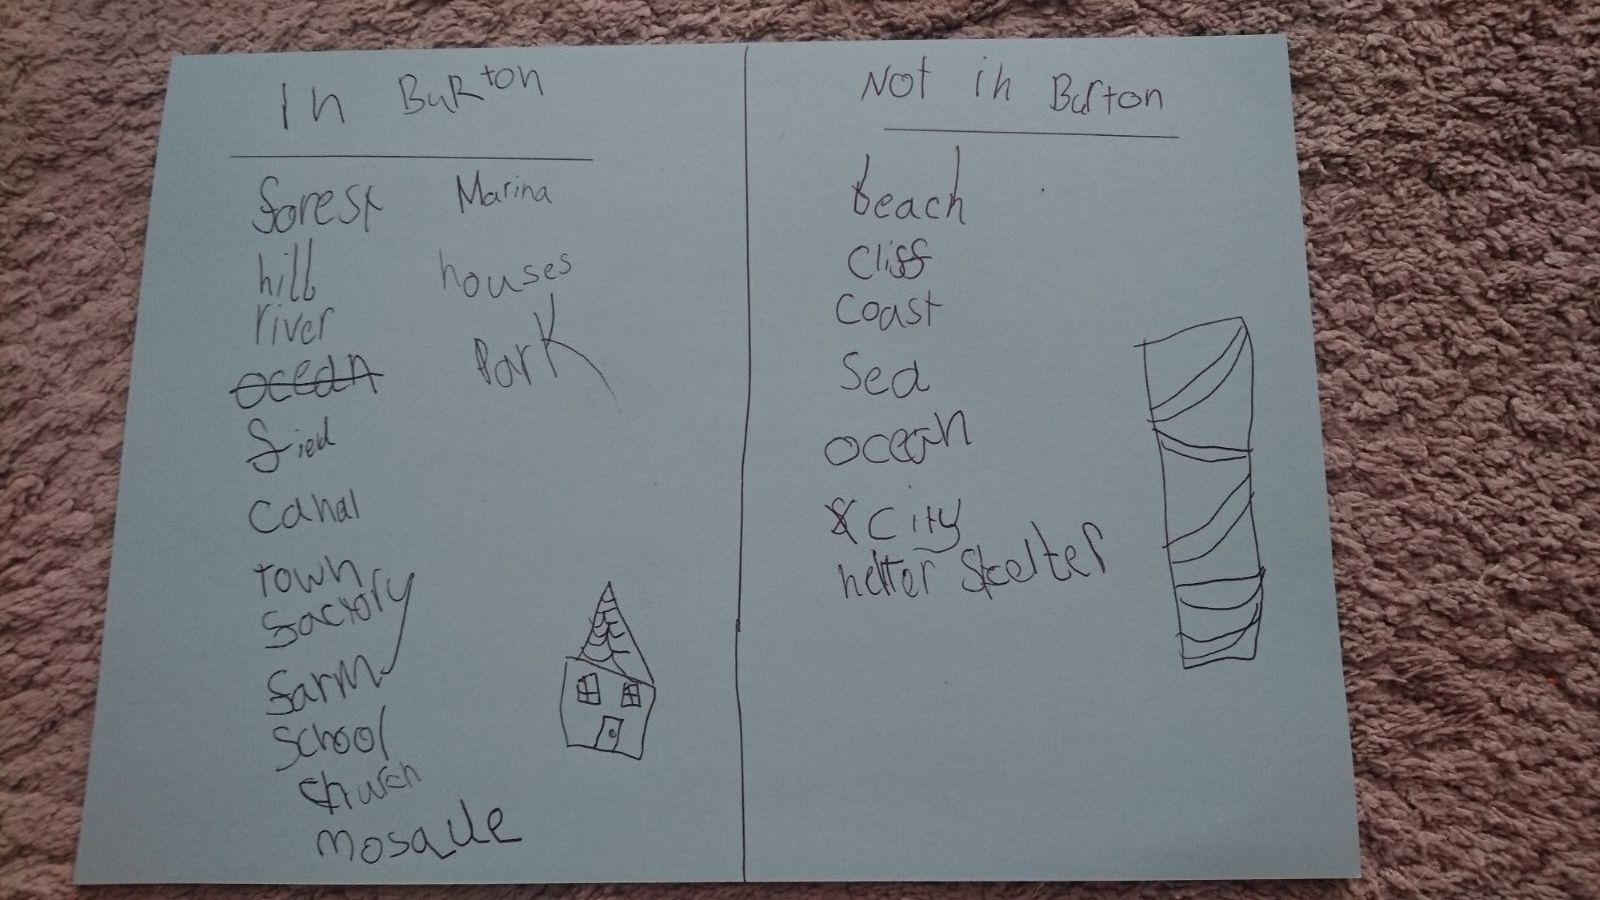 In Burton
forest
hill
river
ocean
fied
canal
town
factory
farm
school
church
mosque
Marina
houses
Park
Not in Burton
beach
cliff
coast
sea
ocean
city
helter skelter